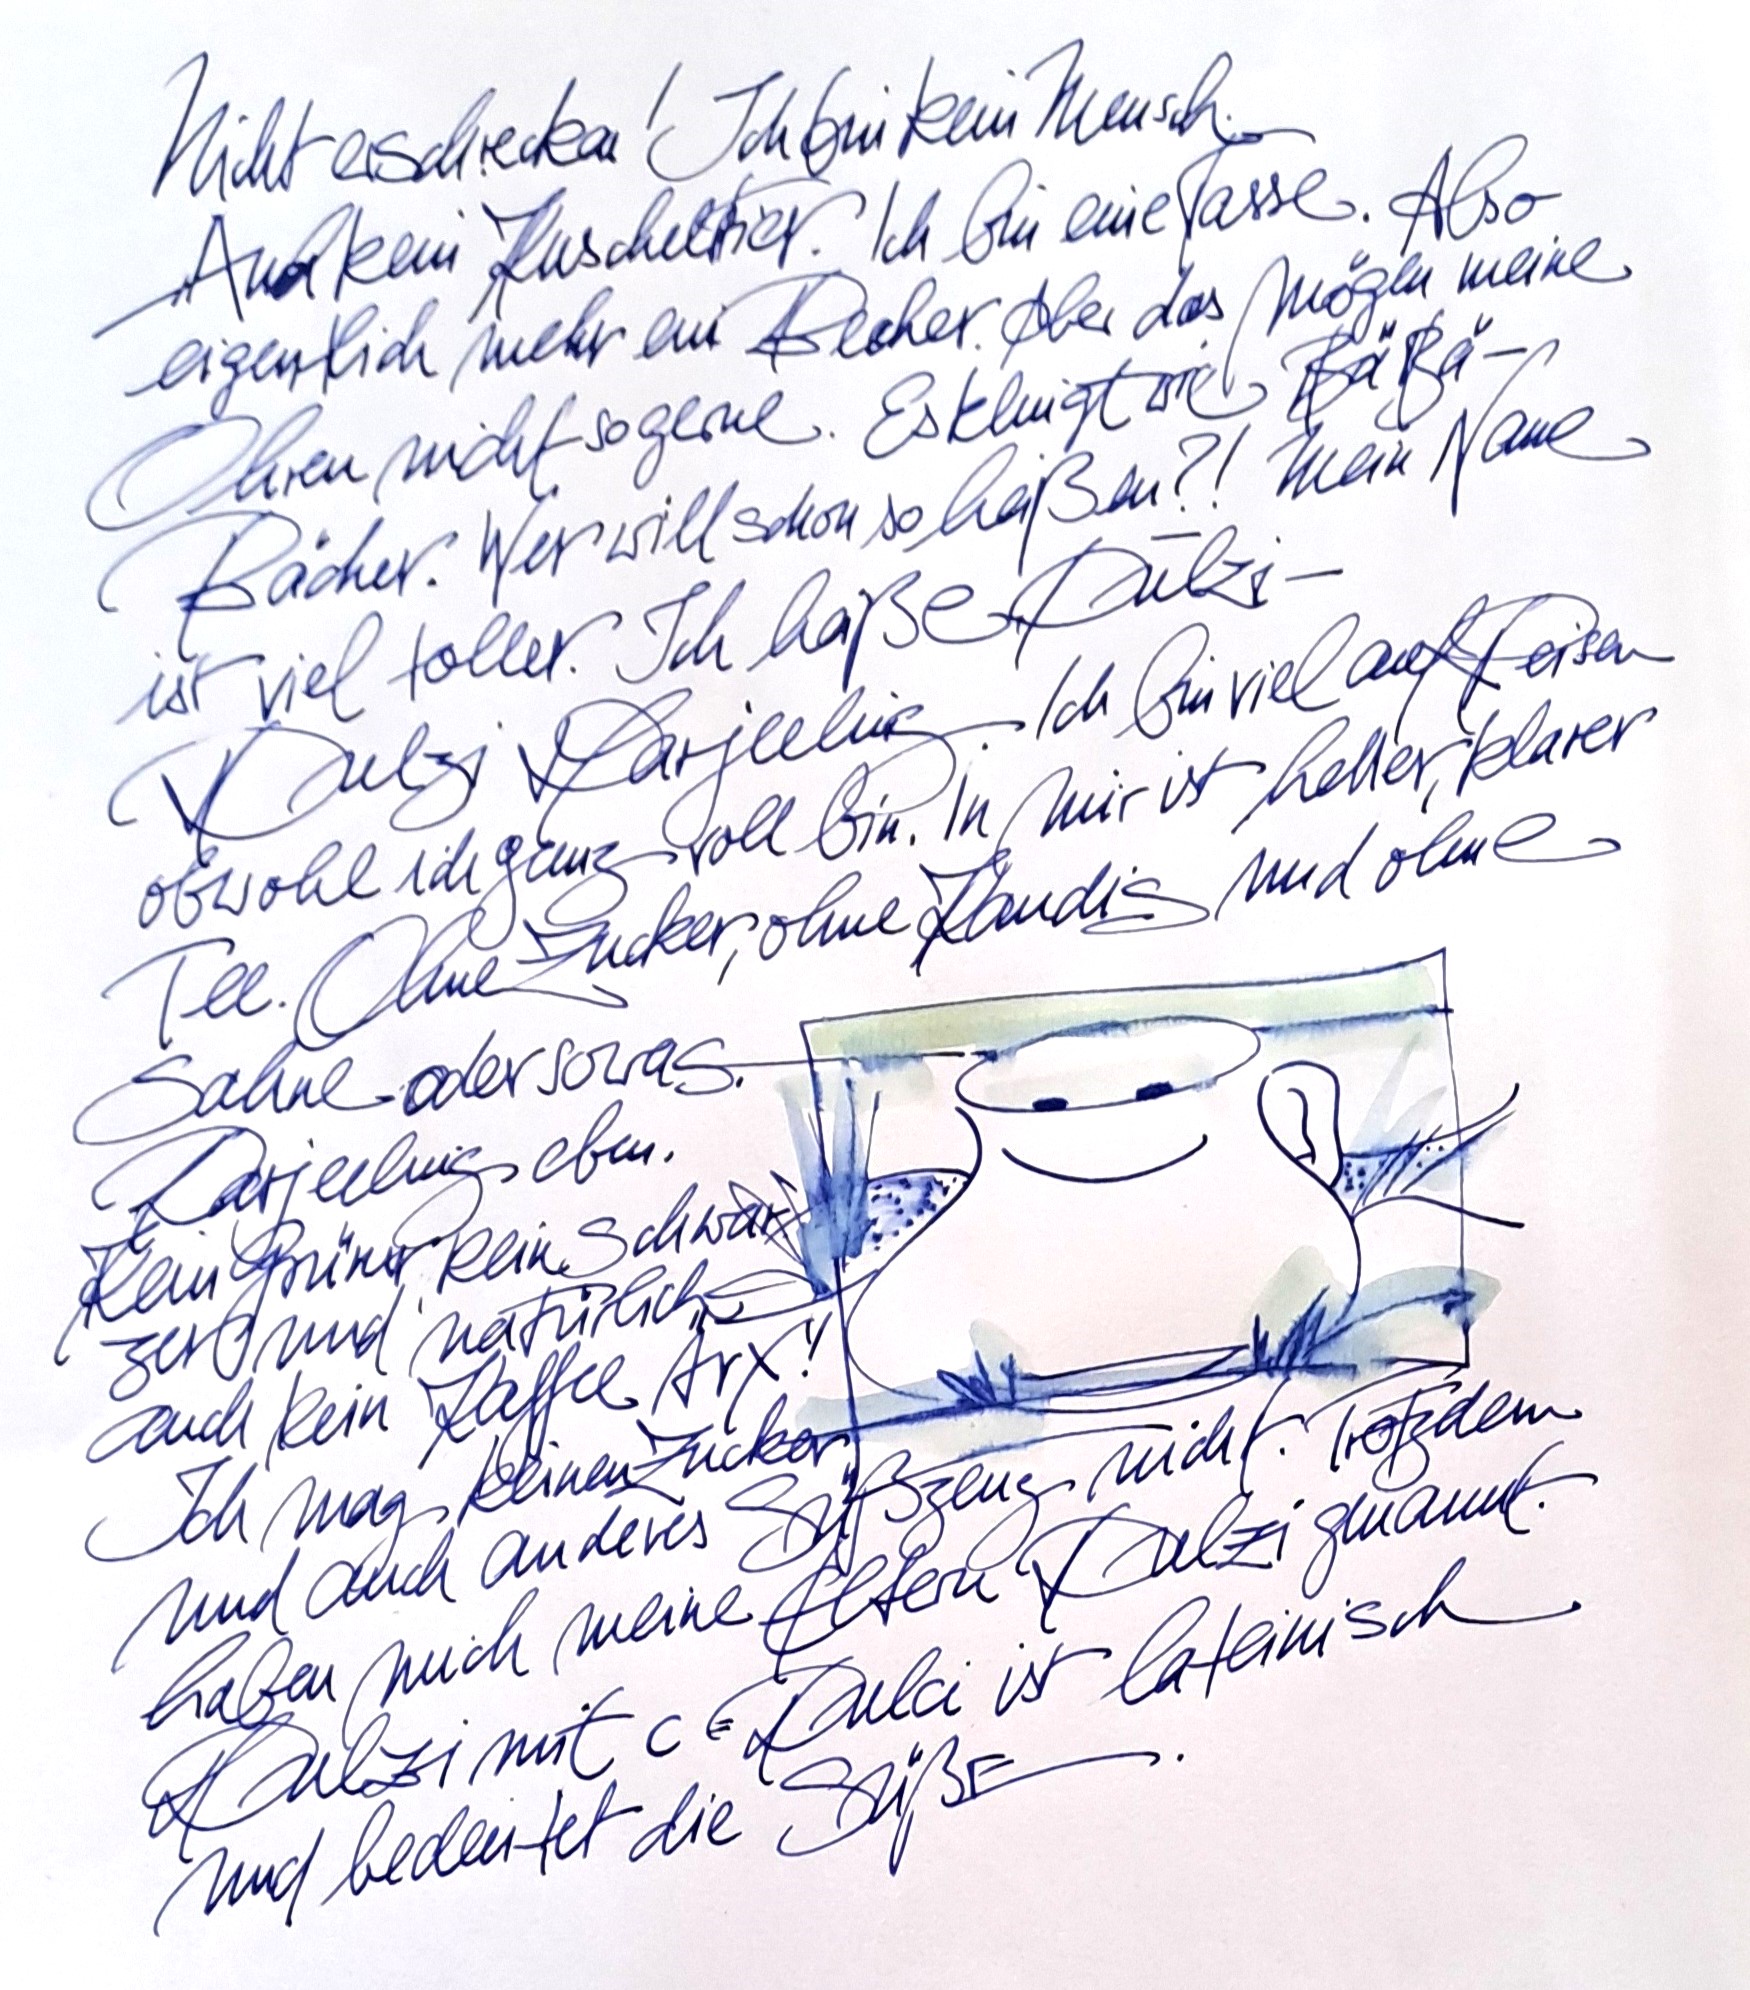 Nicht erschrecken! Ich bin kein Mensch.
Auch kein Kuscheltier. Ich bin eine Tasse. Also
eigentlich mehr ein Becher. Aber das mögen meine
Ohren nicht so gerne. Es klingt wie BäBä-
Bächer. Wer will schon so heißen?! Mein Name
ist viel toller. Ich heiße Dulzi-
Dulzi Darjeeling. Ich bin viel auf Reisen
obwohl ich ganz voll bin. In mir ist heller, klarer
Tee. Ohne Zucker, ohne Kandis und ohne
Sahne oder sowas.
Darjeeling eben.
Kein Grüner, kein Schwar
zer und natürlich
auch kein Kaffee Arx!
Ich mag keinen Zucker
und auch anderes Süßzeug nicht. Trotzdem
haben mich meine Eltern Dulzi genannt.
Dulzi mit c = Dulci ist lateinisch
und bedeutet die Süße.